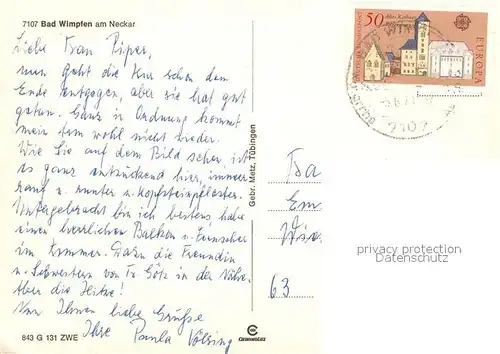 7107 Bad Wimpfen am Neckar
Liebe Frau Piper,
nun geht die Kur schon dem
Ende entgegen, aber sie hat gut
getan. Ganz in Ordnung kommt
mein wohl nicht wieder.
Wie Sie auf dem Bild sehen, ist
es ganz entzückend hier, immer
rauf u. runter u. Kopfsteinpflaster.
Untergebracht bin ich bestens, habe
einen herrlichen Balkon u. Fernseher
im Zimmer. Dazu die Freundin
u. Schwestern von Götz in der Nähe.
Aber die Hitze!
Nun Ihnen liebe Grüße
Ihre Paula Völsing
843 G 131 ZWE
Gebr. Metz, Tübingen
50
EUROPA
7107
63
privacy protection
Datenschutz